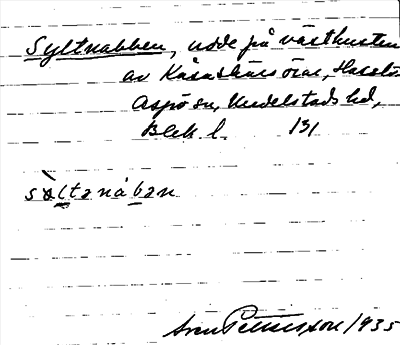 Syltnabben, udde på västkusten
av Kåsaskärs örar, Hasslö,
Aspö sn, Medelstads hd,
Blek. l. 131
sὰltanåban
Sven Pettersson 1935